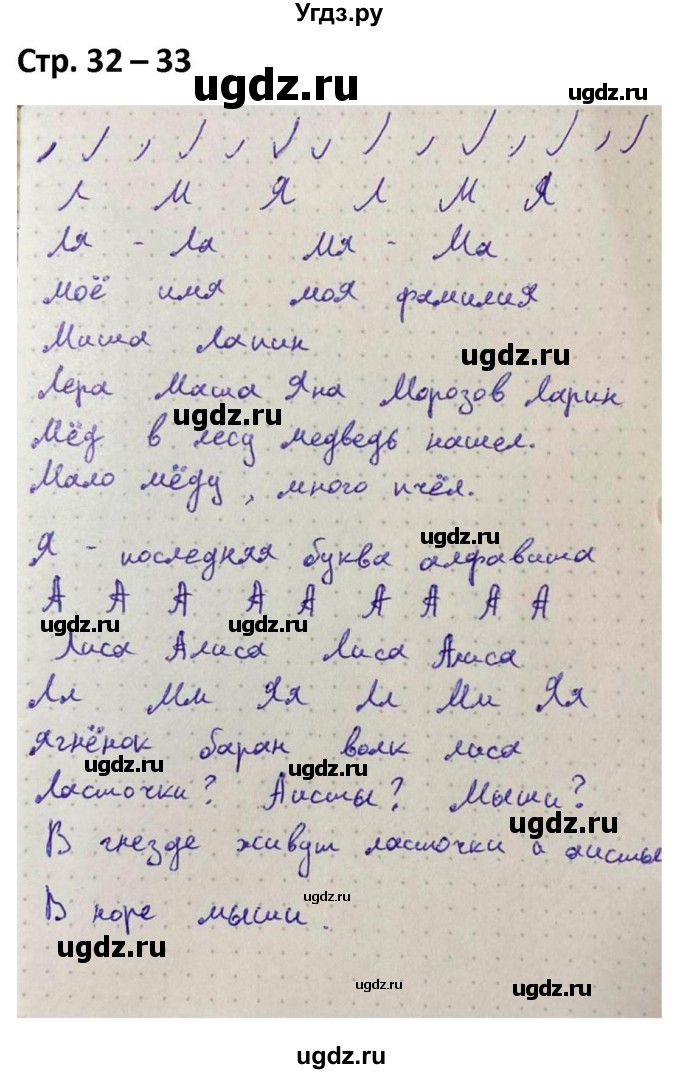 Угдз.ру
Стр. 32 – 33
ugdz.ru
Л М Я Л М Я
Ля - Ла Мя - Ма
моё имя моя фамилия
Миша Лапин
ugdz.ru
Лера Маша Яна Морозов Ларин
ugdz.ru
Мёд в лесу медведь нашел.
Мало мёду, много пчёл.
ugdz.ru
Я - последняя буква алфавита
А А А А А А А А А
ugdz.ru ugdz.ru
Лиса Алиса Лиса Алиса
Лл Мм Яя Лл Мм Яя
ягнёнок баран волк лиса
ugdz.ru ugdz.ru
Ласточки? Аисты? Мыши?
ugdz.ru
В гнезде живут ласточки и аисты
ugdz.ru
В норе мыши.
ugdz.ru
ugdz.ru
ugdz.ru
ugdz.ru